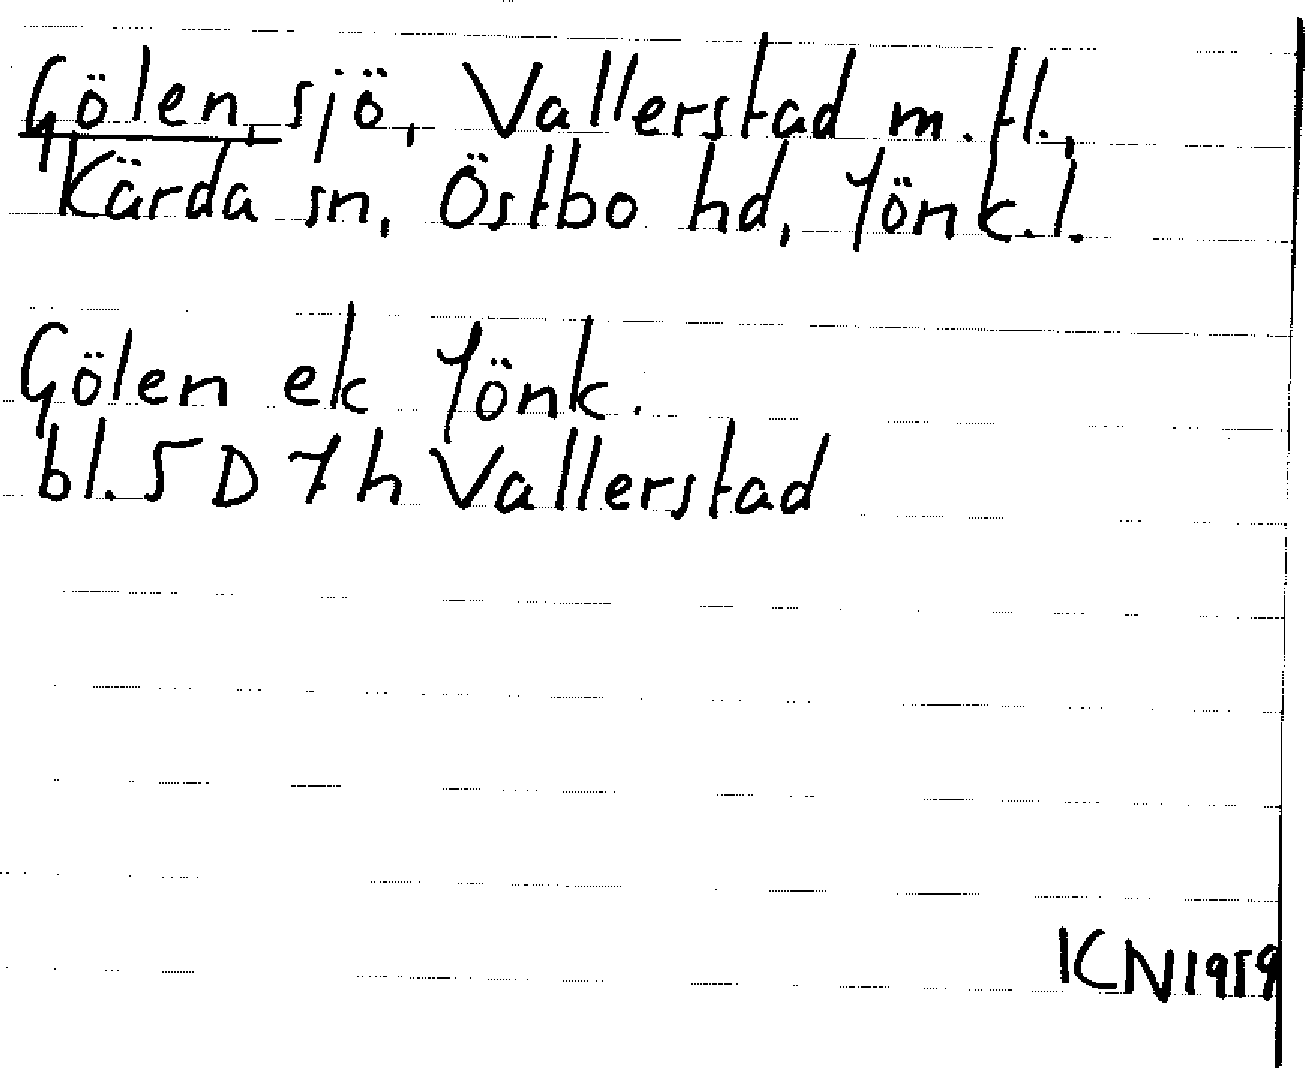 Gölen, sjö, Vallerstad m.fl.,
Kärda sn, Östbo hd, Jönk.l.
Gölen ek Jönk.
bl. 5 D 7 h Vallerstad
KN 1959